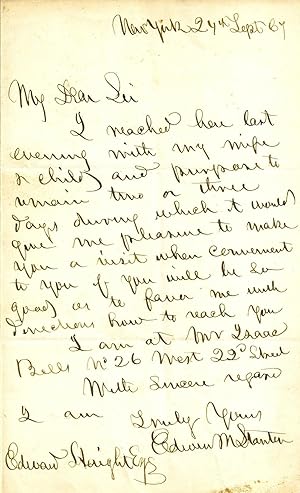 New York 24th Sept 67
My Dear Sir
I reached here last
evening with my wife
& child and purpose to
remain two or three
days during which it would
give me pleasure to make
you a visit when convenient
to you if you will be so
good as to favor me with
directions how to reach you
I am at Mr Isaac
Bells No 26 West 22d Street
With sincere regard
I am Truly Yours
Edwin M Stanton
Edward Esq